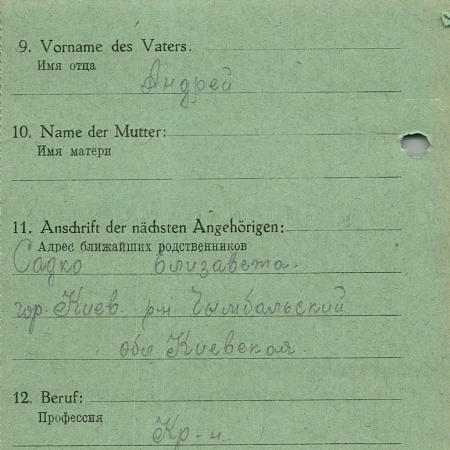 9. Vorname des Vaters.
Имя отца
Андрей
10. Name der Mutter:
Имя матери
11. Anschrift der nächsten Angehörigen:
Адрес ближайших родственников
Садко Елизавета.
гор. Киев. р-н Чымбальский
обл. Киевская.
12. Beruf:
Профессия
Кр-н.